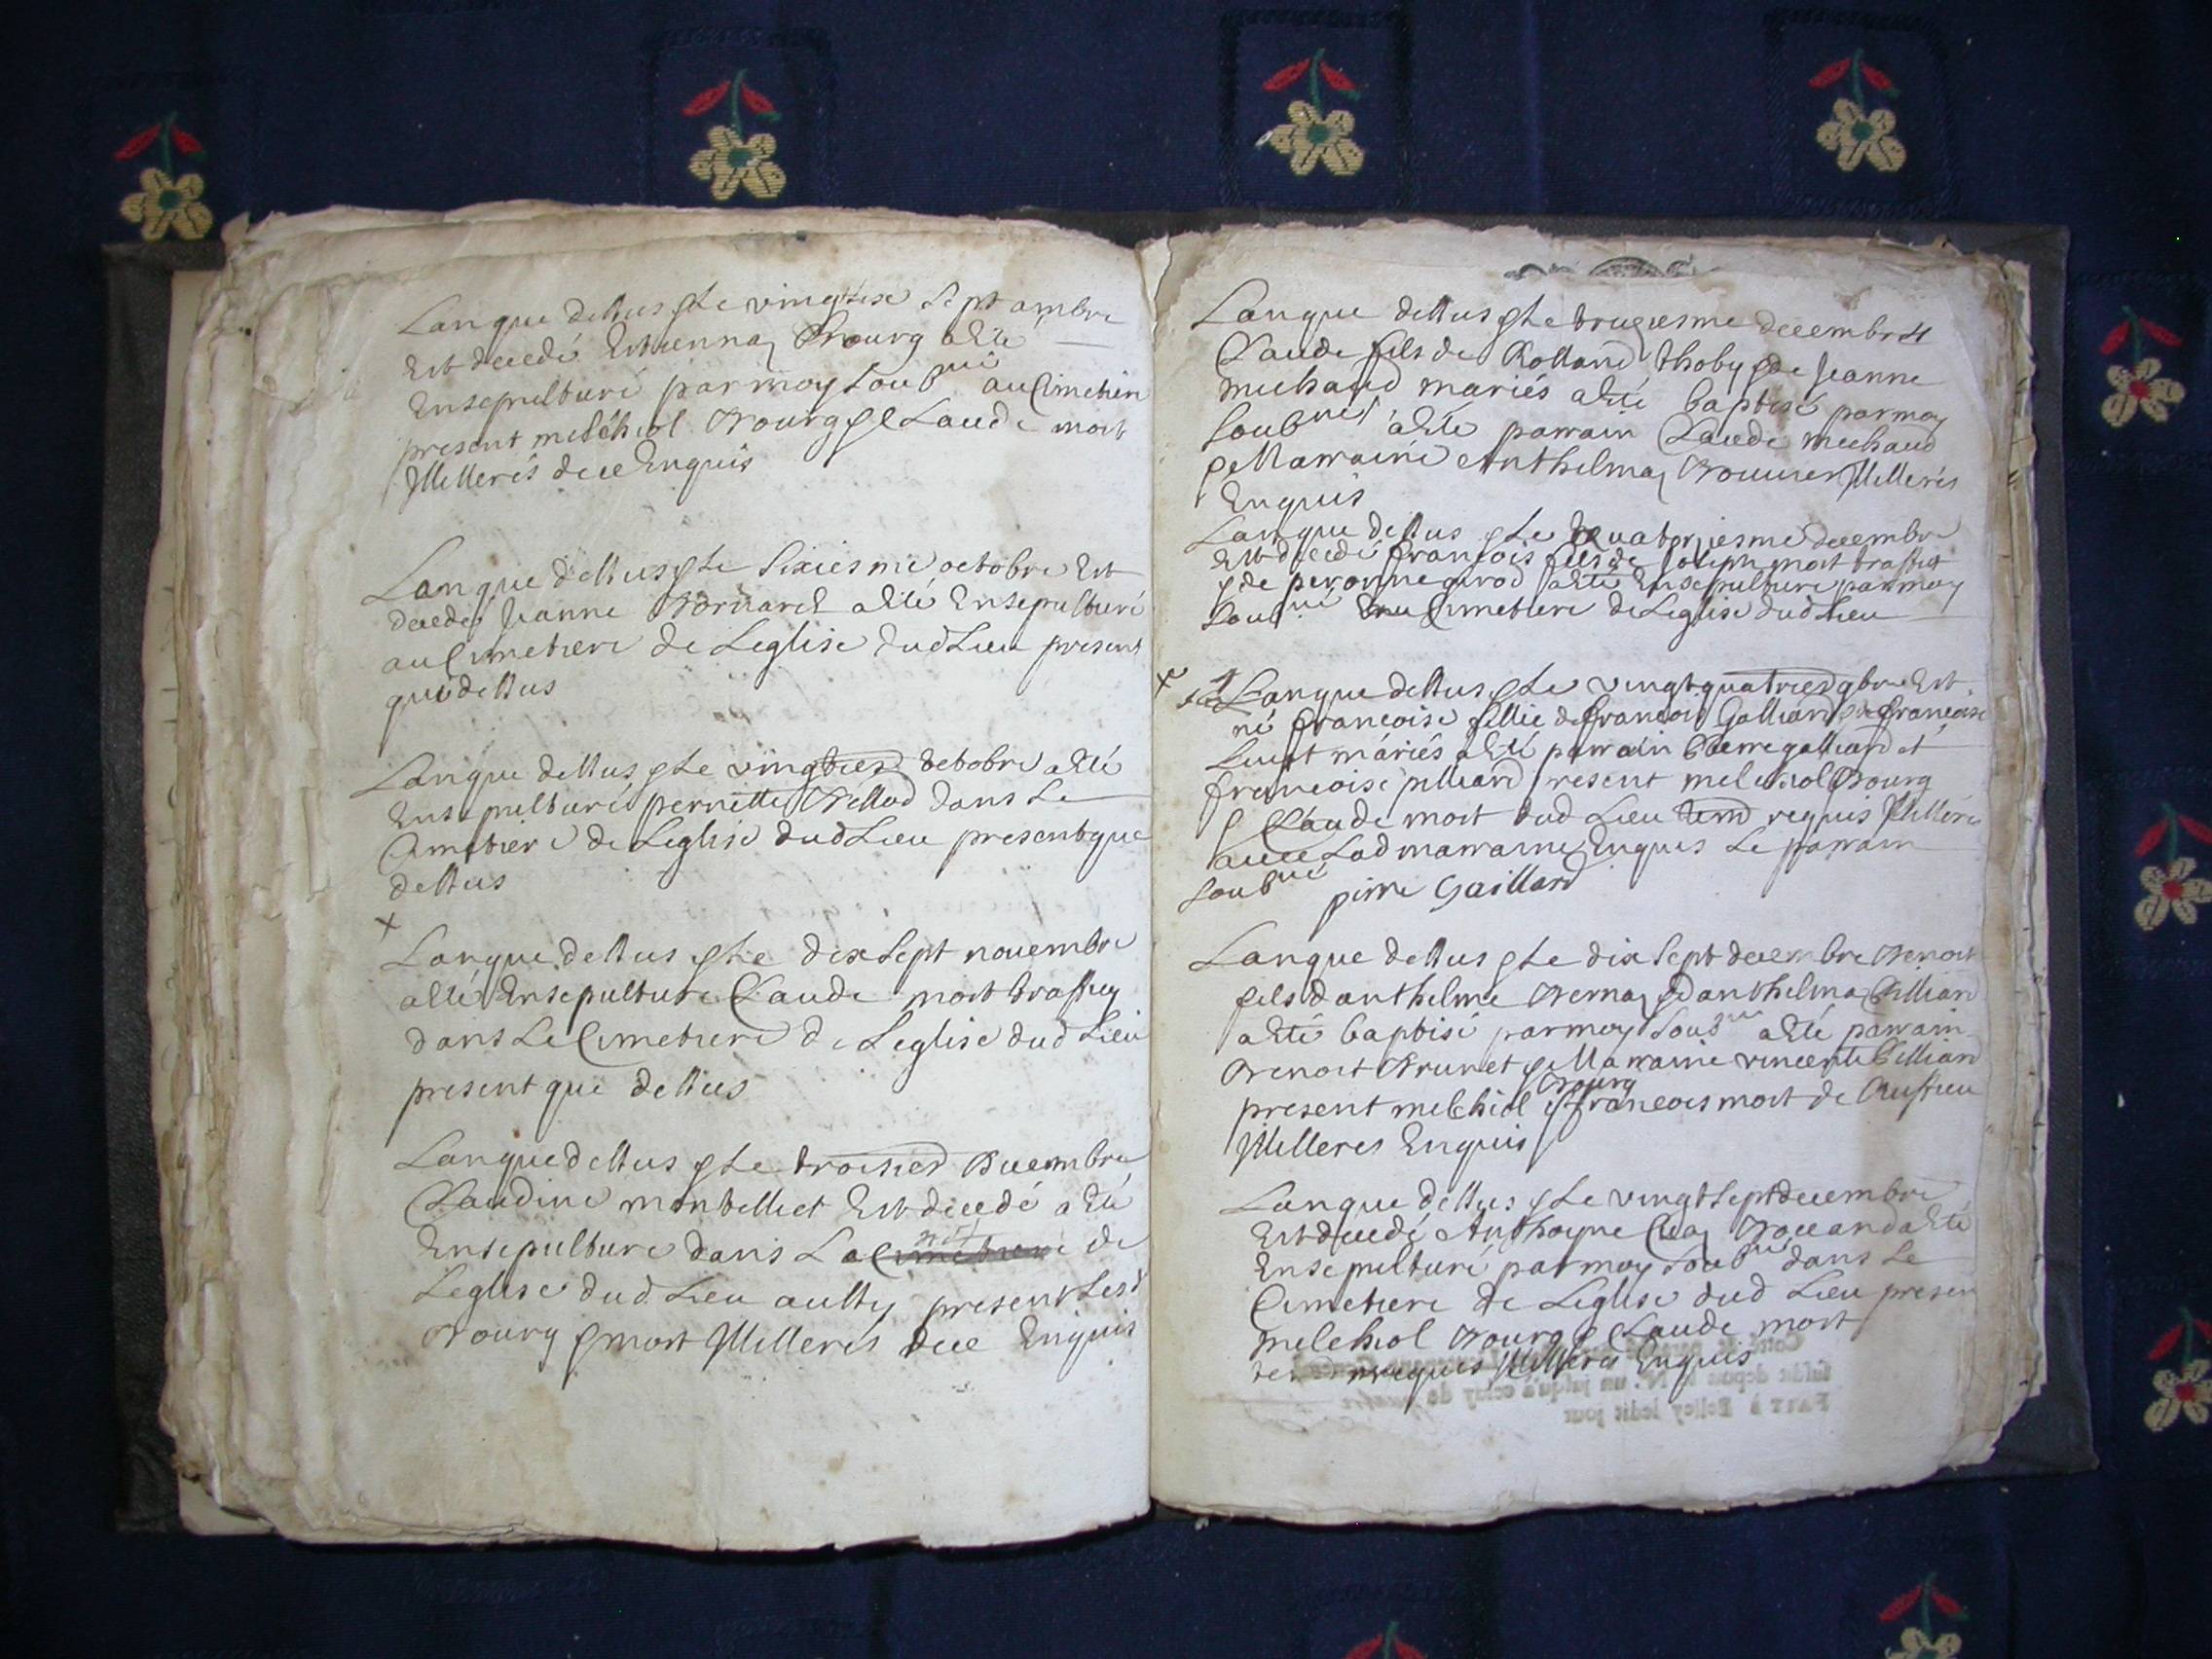 Lan que dessus & le vingt sixe Septambre
Est decedé Estienna Bourg a Esté
Ensepulturé par moy Soubné au Cimetiere
present melchiol Bourg & Claude mort
Illitterés de ce Enquis
Lan que dessus & le Sixiesme octobre Est
decedé Jeanne Bornarel a Esté Ensepulturé
au Cimetiere de Leglise dud Lieu present
que dessus
Lan que dessus & le vingties octobre a Esté
Ensepulturé pernette Vellod dans Le
Cimetiere de Leglise dud Lieu present que
dessus
+
Lan que dessus & le dix Sept nouembre
a Esté Ensepulturé Claude mort trassieu
dans Le Cimetiere de Leglise dud Lieu
present que dessus
Lan que dessus & le troisies Decembre
Claudine montelliet Est decedé a Esté
Ensepulturé dans La nef de
Leglise dud Lieu aussy present Lesd
Bourg & mort Illitterés de ce Enquis
Lan que dessus & le treziesme decembre
Claude fils de Rolland thoby & de Jeanne
michaud mariés a Esté baptisé par moy
Soubné a Esté parrain Claude michaud
& Marraine Anthelma Illiterés
Enquis
Lan que dessus & le quatorziesme decembre
Est decedé françois fils de Joseph mort trassieu
& de peronne girod a Esté Ensepulturé par moy
Soubné au Cimetiere de Leglise dud Lieu
+ Lan que dessus & le vingt quatries 9bre Est
né françoise fillie de françois Galliard & de françoise
mariés a Esté parrain pierre galliard et
françoise present melchiol Bourg
& Claude mort dud Lieu requis Illiteré
auec Lad marraine Enquis Le parrain
Soubné pierre Gaillard
Lan que dessus & le dix Sept decembre Benoit
fils danthelme Berna & danthelma Billiard
a Esté baptisé par moy Soubné a Esté parrain
Benoit Brunet & Marraine vincente Billiard
present melchiol Bourg & françois mort de
Illiteres Enquis
Lan que dessus & le vingt Sept decembre
Est decedé Anthoyne a Esté
Ensepulturé par moy Soubné dans Le
Cimetiere de Leglise dud Lieu presen
melchiol Bourg & Claude mort
requis Illiteres Enquis